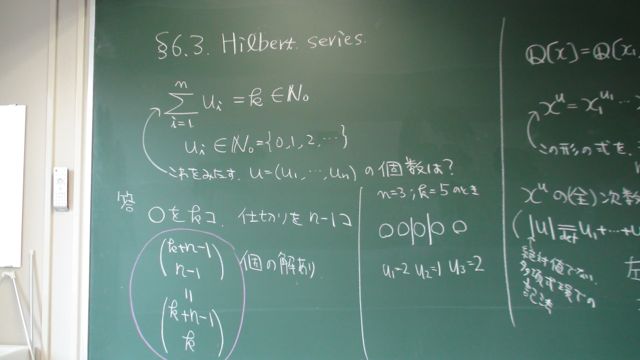 §6.3. Hilbert series.
n
∑ uᵢ = k ∈ ℕ₀
i=1
uᵢ ∈ ℕ₀ = {0, 1, 2, ⋯}
これをみたす. u=(u₁, ⋯, uₙ) の個数は?
答 ○をkコ, 仕切りをn-1コ
(k+n-1
n-1) 個の解あり.
=
(k+n-1
k)
n=3; k=5 のとき
○○|○|○○
u₁=2 u₂=1 u₃=2
ℚ[x] = ℚ[x₁
xᵘ = x₁ᵘ¹ ⋯
この形の式を.
xᵘ の(全)次数
( |u| =def u₁+⋯+u
絶対値でない.
多項式環での
記法